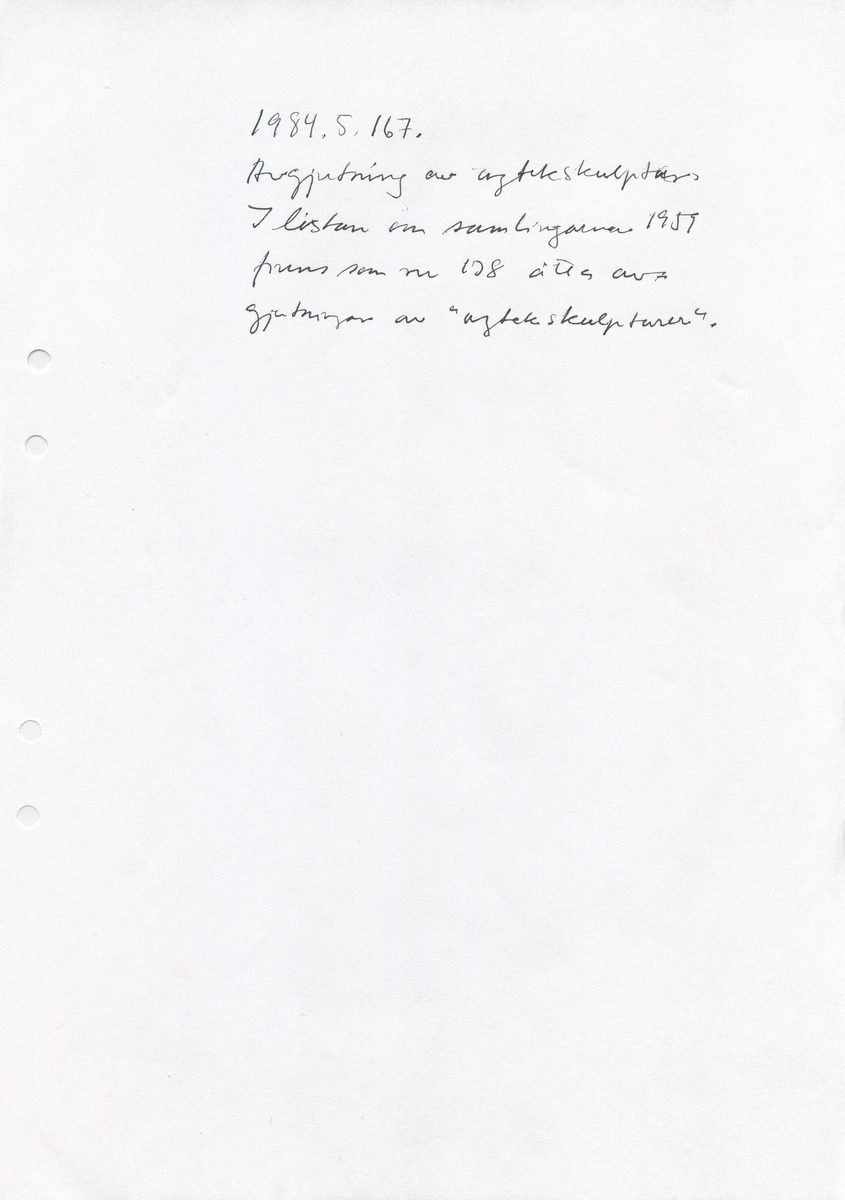 1984.5.167.
Avgjutning av aztekskulptur.
I listan om samlingarna 1959
finns som nr 128 åtta av=
gjutningar av "aztekskulpturer".